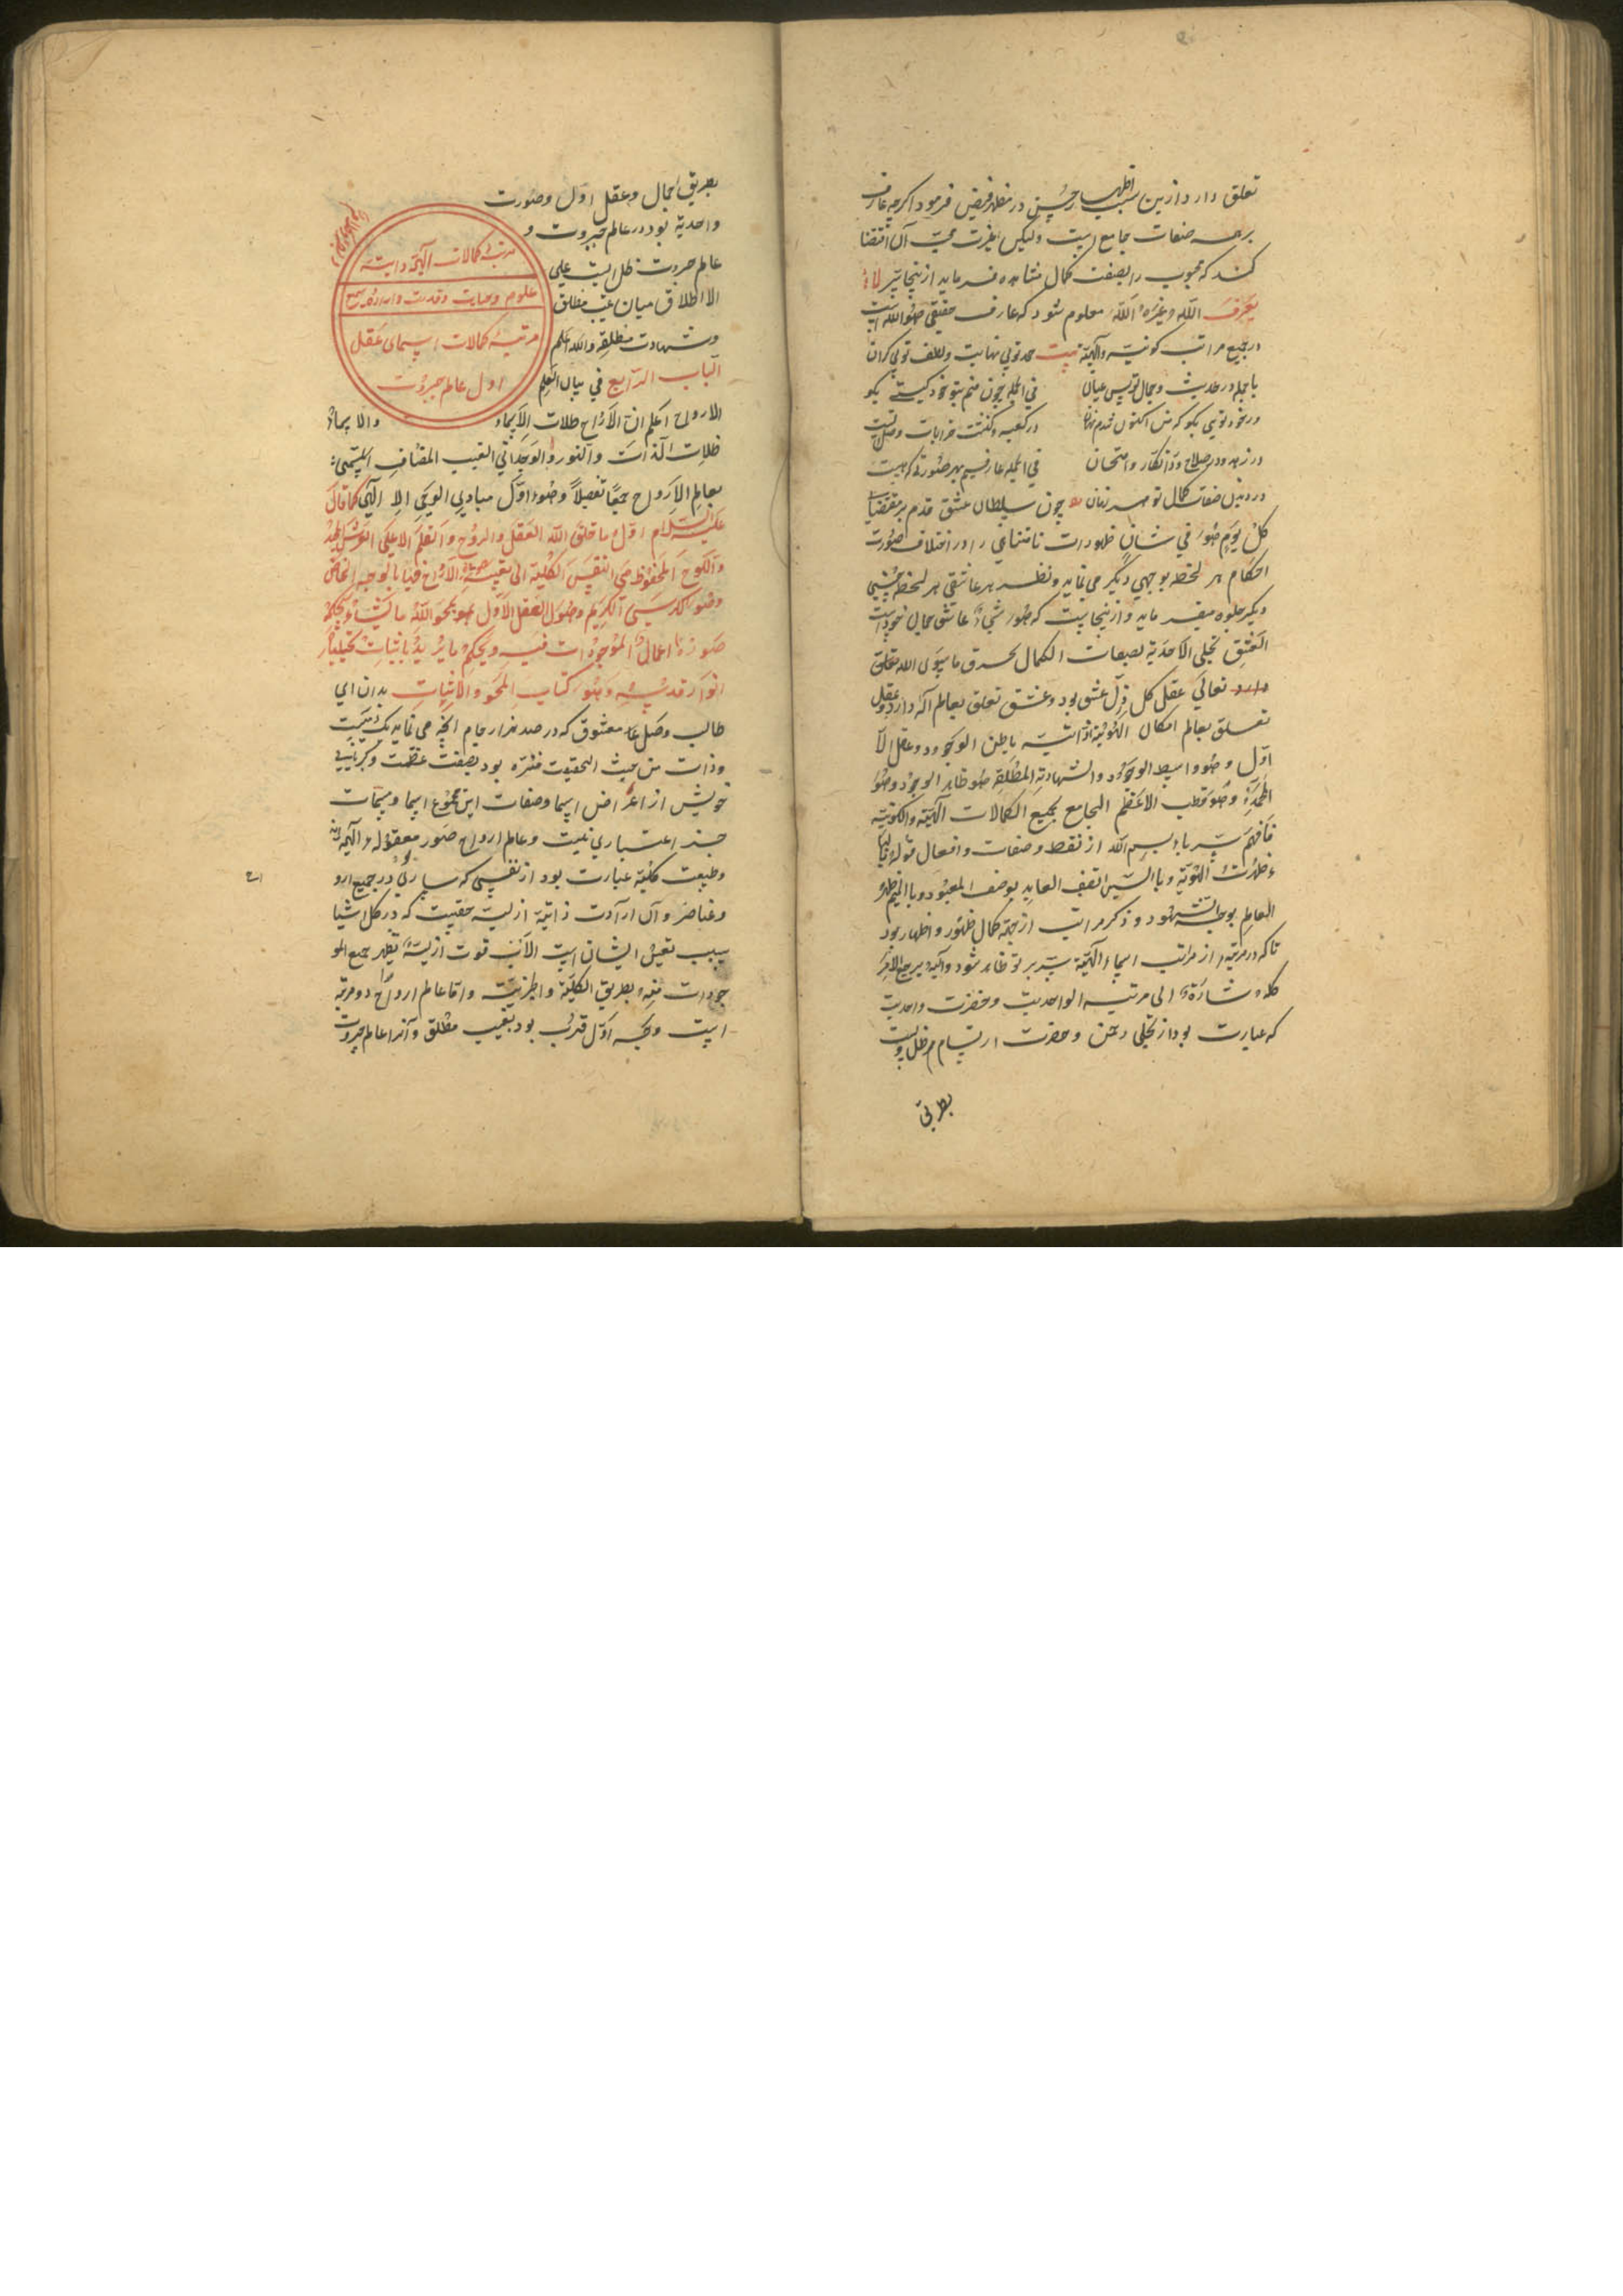 تعلق دارد ازین سبب اظهار حسن در مظهر فیض فرمود اکرچه عارف
بر جمیع صفات جامع است ولیکن غیرت محبّ آن اقتضا
کند که محبوب را بصفت کمال مشاهده فرماید ازینجا سرّ لا
یعرف الله غیره الله معلوم شود که عارف حقیقی هو الله است
در جمیع مراتب کونیّه والهیّه بیت حد تویی نهایت ولطف تویی کران
با جمله در حدیث وجمال تو بس عیان فی الجمله چون منم بتو خود کیستی بکو
ور خود تویی بکو که من اکنون شدم نهان در کعبه وکنشت خرابات
در زهد ودر صلاح ودر انکار وامتحان فی الجمله عارفیم بهر صورتی که هست
در دیدن صفات کمال تو هر زمان چون سلطان عشق قدم بر مقتضیات
کلّ یوم هو فی شان ظهورات نامتناهی را در اختلاف صورت
احکام هر لحظه بوجهی دیکر می نماید ونظر هر عاشقی هر لحظه بحسنی
دیکر جلوه میفرماید وازینجاست که هر شیء عاشق جمال خود است
العشق تجلی الاحدیّة بصفات الکمال یحرق ما سوی الله تعلق
دارد تعالی عقل کل ذلّ عشق بود وعشق تعلق بعالم اله دارد وعقل
تعلق بعالم امکان الهویّة الذاتیّه باطن الوجود وعقل الا
اوّل وهو واسط الوجود والشهادة المطلقة هو ظاهر الوجود وهو
وهو قطب الاعظم الجامع بجمیع الکمالات الالهیّه والکونیّه
فافهم سرّ باء بسم الله از نقط وصفات وافعال
ظهرت الهویّة وبالسّین اتّصف العابد بوصف المعبود وبالمیم ظهر
العالم بوجه الشهود وذکر مراتب از جهة کمال ظهور واظهار بود
تا که در مرتبهٔ از مراتب اسماء الهیّة سرّ بر تو ظاهر شود والیه یرجع الامر
کله اشارة الی مرتبه الواحدیت وحضرت واحدیت
که عبارت بود از تجلی رحمن وحضرت ارتسام هر ظل وی است
بطریق
بطریق اجمال وعقل اوّل وصورت
واحدیة بود در عالم جبروت و
عالم جبروت ظل است علی
الاطلاق میان غیب مطلق
وشهادت مطلقه والله اعلم
الباب الرّابع فی بیان العلم
مرتبهٔ کمالات الهی ذاتیّه
علوم وحیات وقدرت واراده وسمع
مرتبهٔ کمالات اسمای عقل
اول عالم جبروت
الارواح اعلم انّ الارواح ظلات الاسماء والاسماء
ظلات الذات والنور والوجدانی الغیب المضاف المسمّی
بعالم الارواح جمعًا تفصیلاً وهو اوّل مبادی الوحی الالهی کما قال
علیه السّلام اوّل ما خلق الله العقل والروح والقلم الاعلی العرش المجید
واللوح المحفوظ هی النفس الکلیّة الارواح فیها بالوجه الخاص
وهو الکرسی الکریم وهو ل العقل الاوّل هو یمحو الله ما یشاء ویحکم
صورة اعمال الموجودات فیه ویحکم ما یرید باثبات
انوار قدسیّه وهو کتاب المحو والاثبات بدان ای
طالب وصل معشوق که در صد هزار جام انچه می نماید یک
وذات من حیث الحقیقت منزّه بود بصفت عظمت وکبریایی
خویش از اعراض اسما وصفات این مجموع اسما ومسمّات
جز اعتباری نیست وعالم ارواح صور معقوله الهیّه
وطبیعت کلیّه عبارت بود از نفسی که ساری در جمیع ارو
اح
وعناصر وآن ارادت ذاتیّه ازلیّه حقیست که در کل اشیا
سبب تعیّن ایشان است الآن قوت ازلیّة یظهر جمیع المو
جودات منه بطریق الکلیّة والجزئیّة وامّا عالم ارواح دو مرتبه
است وجه اوّل قرب بود بغیب مطلق وآنرا عالم جبروت